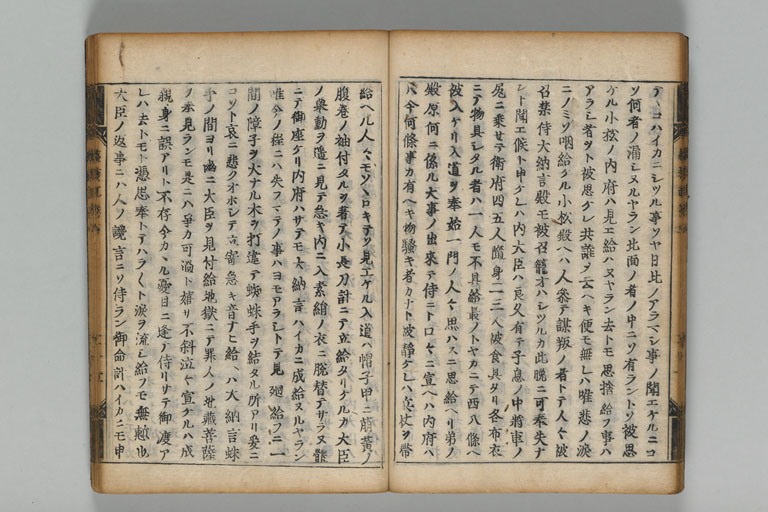 テ、コハイカニシツル事ソヤ日比ノアラマシ事ノ聞エケルニコ
ソ何者ノ漏シヌルヤラン北面ノ者ノ中ニソ有ラントソ被思
ケル小松ノ内府ハ見エ給ハヌヤラン去トモ思捨給フ事ハ
アラシ者ヲト被思ケレ共誰ノ云ヘキ便モ無レハ唯悲ノ涙
ニノミソ咽給ケル小松殿ヘハ人参テ謀叛ノ者トテ人々被
召禁侍大納言殿モ被召籠オハシツルカ此晩ニ可奉失ナ
ント聞エ候ト申ケレハ内大臣ハ良久有テ子息ノ中将車ノ
尻ニ乗セテ衛府四五人随身二三人被食具タリ各布衣
ニテ物具シタル者ハ一人モ不具給最ノトヤカニテ西八條ヘ
被入ケリ入道ヲ奉始一門ノ人々思ハスニ思給ヘリ弟ノ
殿原何ニ係ル大事ノ出来テ侍ニトロ々々ニ宣ヘハ内府ハ
ハ今何條事カ有ヘキ物騒キ者カナト被静ケレハ兵杖ヲ帯
給ヘル人々モソヽロキテソ見エケル入道ハ帽子甲ニ萠黄ノ
腹巻ノ袖付タルヲ着テ小長刀計ニテ立給タリケルカ大臣
ノ来動ヲ遥ニ見テ急キ内ニ入素絹ノ衣ニ脱替テサラヌ體
ニテ御座ケリ内府ハサテモ大納言ハイカニ成給ヌルヤラン
唯今ノ程ニハ失フマテノ事ハヨモアラシトテ見廻給フニ一
間ノ障子ヲ大ナル木ヲ打違テ蜘蛛手ヲ結タル所アリ爰ニ
コソト哀ニ悲クオホシテ立寄急キ音ナヒ給ヘハ大納言蛛
手ノ間ヨリ幽ニ大臣ヲ見付給地獄ニテ罪人ノ地蔵菩薩
ヲ奉見ランモ是ニハ争カ可過ト嬉サ不斜泣々宣ケルハ成
親身ニ誤アリト不存今カヽル憂目ニ逢テ侍リサテ御渡ア
レハ去トモト憑思奉トテハラ〱ト涙ヲ流シ給フモ無慙也
大臣ノ返事ニハ人ノ讒言ニソ侍ラン御命計ハイカニモ申